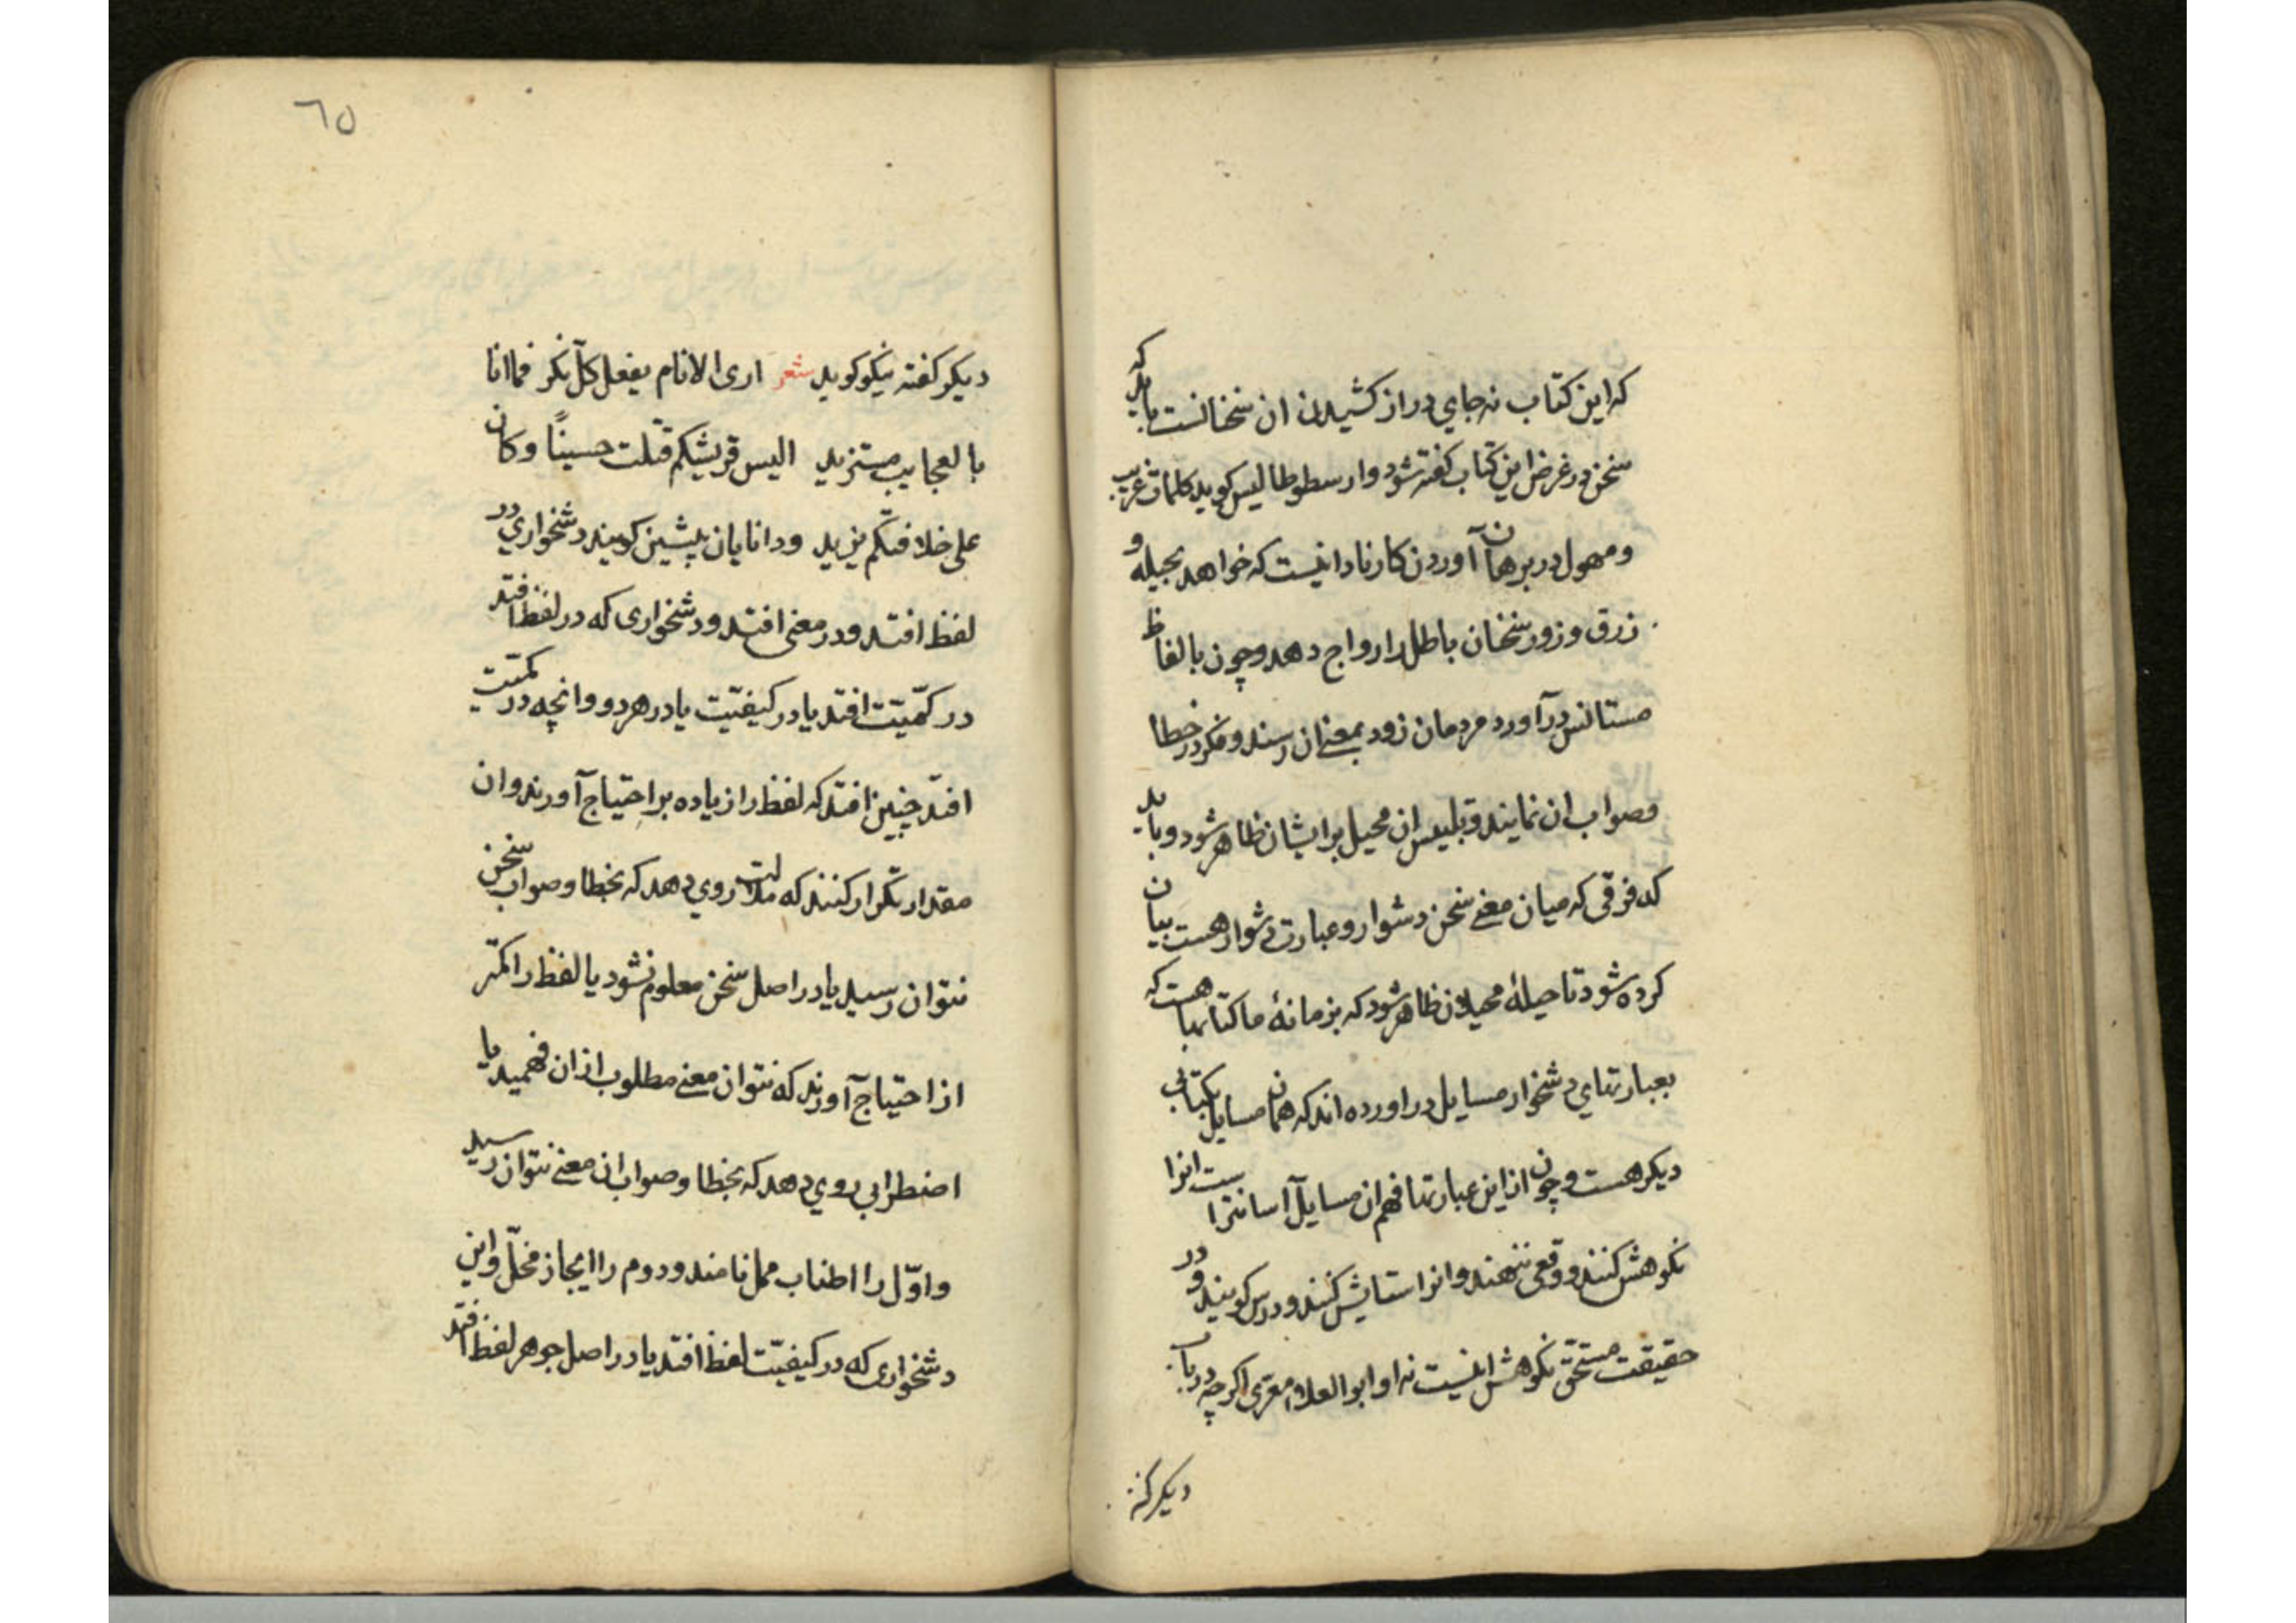 که این کتاب نه جاي دراز کشیدن ان سخنانست باید که
سخن در غرض این کتاب کفته شود وارسطوطالیس کوید کلمات غریب
ومهول در برهان آوردن کار نادانیست که خواهد بحیله و
زرق وزور سخنان باطل را رواج دهد وچون بالفاظ
مستانس درآورد مردمان زود بمعنے ان رسند وفکر در خطا
وصواب ان نمایند وتبلیس ان محیل برایشان ظاهر شود وباید
که فرقی که میان معنے سخن دشوار وعبارت دشوار هست بیان
کرده شود تا حیلۀ محیلان ظاهر شود که بزمانۀ ما کتابها هست که
بعبارتهاي دشخوار مسایل دراورده اند که همان مسایل بکتابی
دیکر هست وچون ازاین عبارتها فهم ان مسایل آسانتر است انرا
نکوهش کنند ووقعی ننهند وانرا ستایش کنند ودرس کویند ودر
حقیقت مستحق نکوهش اینست نه او ابوالعلاء معری اکرچه درباب
دیکر کفته
٦٥
دیکر کفته نیکو کوید شعر اری الانام یفعل کل نکر فما انا
بالعجایب مستزید الیس قریشکم قتلت حسینًا وکان
علی خلافتکم یزید ودانایان پیشین کویند دشخواري در
لفظ افتد ودر معنی افتد ودشخواری که در لفظ افتد
در کمّیّت افتد یا در کیفیّت یا در هردو وانچه در کمّیّت
افتد چنین افتد که لفظ را زیاده بر احتیاج آورند وان
مقدار تکرار کنند که ملالت روي دهد که بخطا وصواب سخن
نتوان رسید یا در اصل سخن معلوم نشود یا لفظ را کمتر
از احتیاج آورند که نتوان معنے مطلوب ازان فهمید یا
اضطرابی روي دهد که بخطا وصواب ان معنے نتوان رسید
واوّل را اطناب ممل نامند ودوم را ایجاز مخلّ واین
دشخواری که در کیفیّت لفظ افتد یا در اصل جوهر لفظ افتد